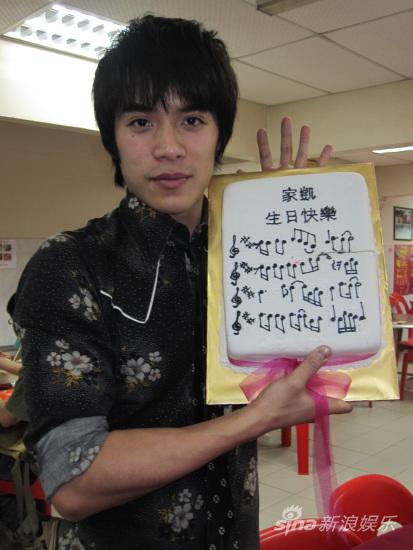 家凱
生日快樂
sina新浪娱乐